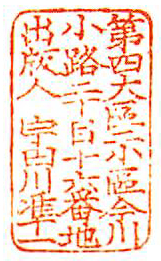 第四大區二小區今川
小路二丁目十六番地
出版人 宇田川準一